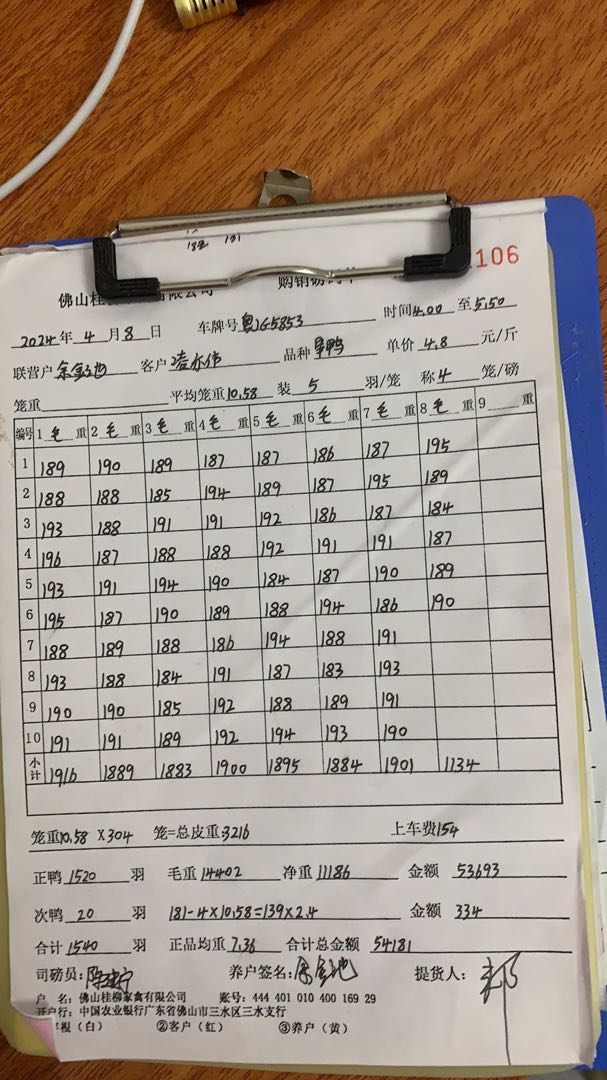 1106
佛山桂 有限公司 购销磅码单
2024年 4 月 8 日 车牌号 粤JG5853 时间 4.00 至 5.50
联营户 余金地 客户 凌亦伟 品种 旱鸭 单价 4.8 元/斤
笼重 平均笼重 10.58 装 5 羽/笼 称 4 笼/磅
编号 1 毛 重 2 毛 重 3 毛 重 4 毛 重 5 毛 重 6 毛 重 7 毛 重 8 毛 重 9 重
1 189 190 189 187 187 186 187 195
2 188 188 185 194 189 187 195 189
3 193 188 191 191 192 186 187 184
4 196 187 188 188 192 191 191 187
5 193 191 194 190 184 187 190 189
6 195 187 190 189 188 194 186 190
7 188 189 188 186 194 188 191
8 193 188 184 191 187 183 193
9 190 190 185 192 188 189 191
10 191 191 189 192 194 193 190
小计 1916 1889 1883 1900 1895 1884 1901 1134
笼重 10.58 X 304 笼=总皮重 3216 上车费 154
正鸭 1520 羽 毛重 14402 净重 11186 金额 53693
次鸭 20 羽 181-4×10.58=139×2.4 金额 334
合计 1540 羽 正品均重 7.36 合计总金额 54181
司磅员: 养户签名: 余金地 提货人:
户 名: 佛山桂柳家禽有限公司 账号: 444 401 010 400 169 29
开户行: 中国农业银行广东省佛山市三水区三水支行
根(白) ②客户(红) ③养户(黄)